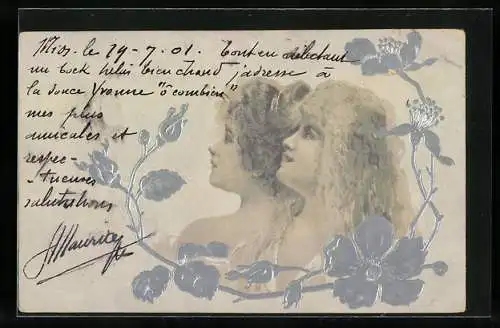 Mios. le 29-7.01. Tout en délectant
un bock hélas bien chaud j'adresse à
la douce Yvonne "ô combien"
mes plus
amicales et
respec-
-tueuses
salutations
Maurice